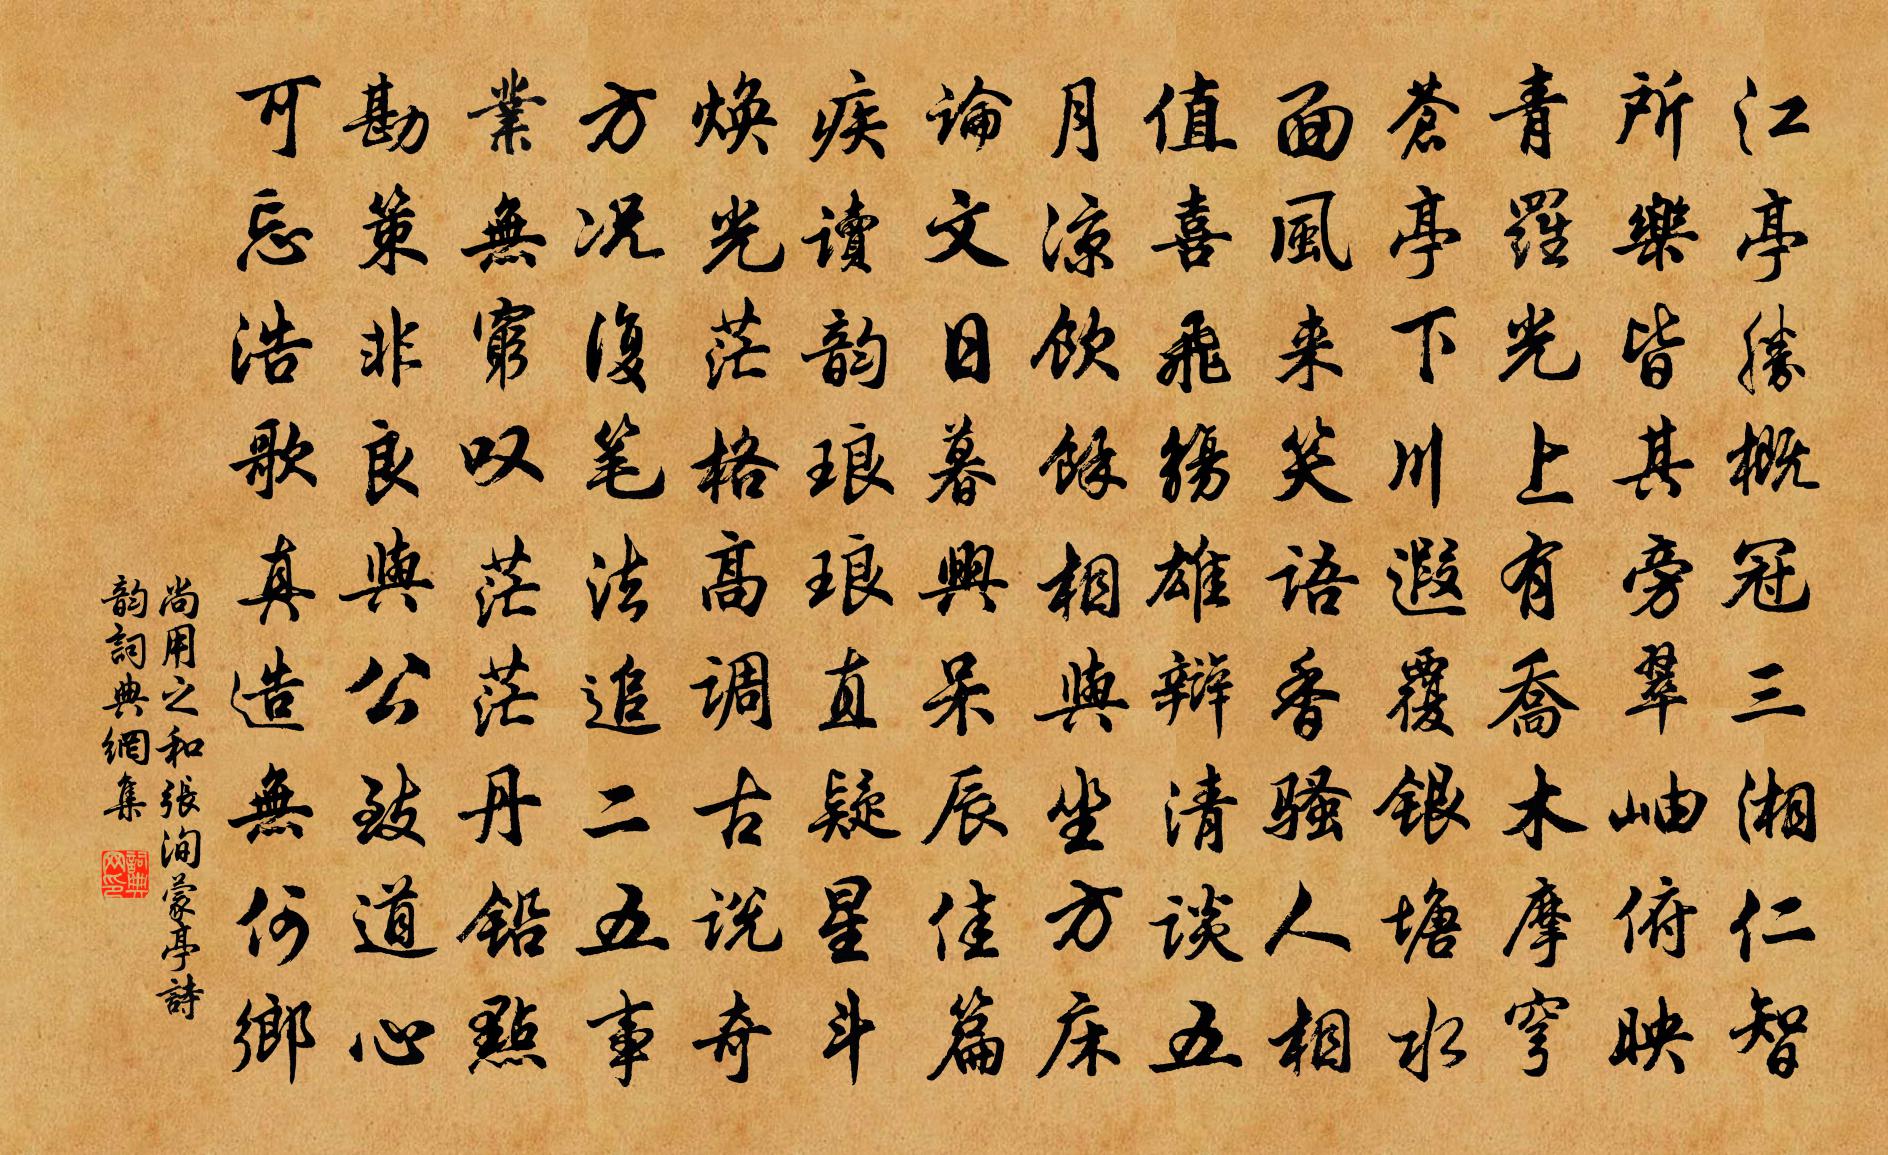 江亭勝概冠三湘仁智
所樂皆其旁翠岫俯映
青羅光上有喬木摩穹
蒼亭下川遐覆銀塘水
面風来笑語香骚人相
值喜飛觴雄辯清談五
月涼飲餘相與坐方床
論文日暮興呆辰佳篇
疾讀韵琅琅直疑星斗
焕光茫格高調古説奇
方况復笔法追二五事
業無窮叹茫茫丹鉛點
勘策非良與公致道心
可忘浩歌真造無何鄉
尚用之和張洵蒙亭詩
韵詞典網集
詞典网印